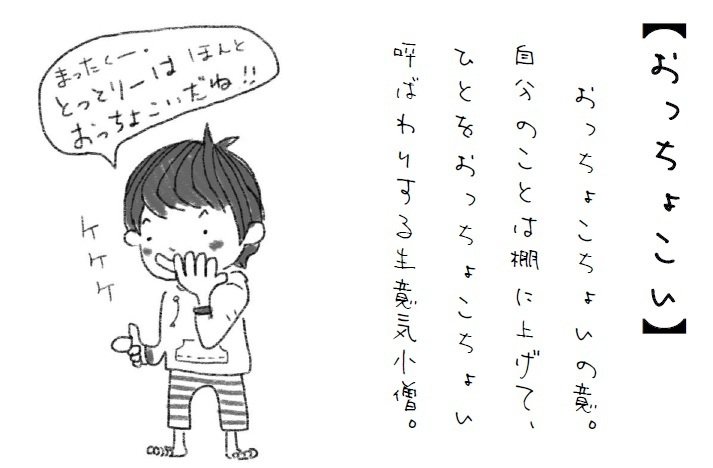 【おっちょこい】
おっちょこちょいの意。
自分のことは棚に上げて、
ひとをおっちょこちょい
呼ばわりする生意気小僧。
まったくー・
とっとりーは ほんと
おっちょこいだね!!
ケケケ